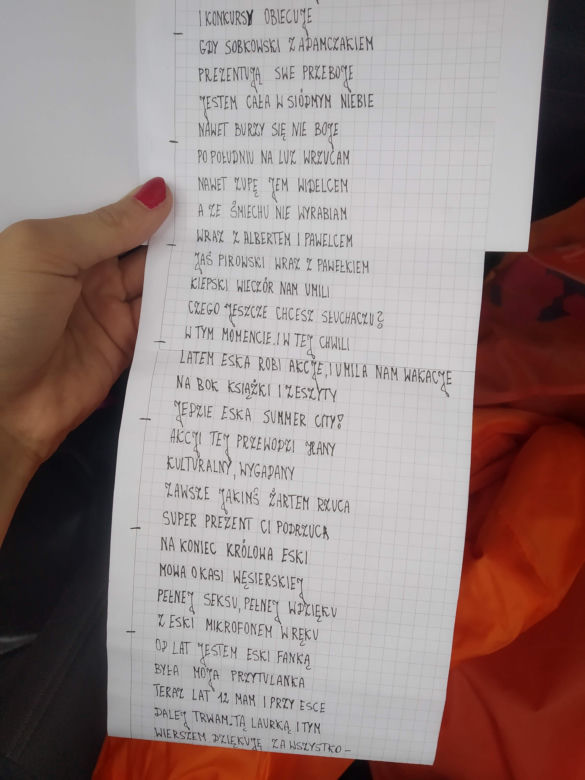 I KONKURSY OBIECUJE
GDY SOBKOWSKI Z ADAMCZAKIEM
PREZENTUJĄ SWE PRZEBOJE
JESTEM CAŁA W SIÓDMYM NIEBIE
NAWET BURZY SIĘ NIE BOJE
PO POŁUDNIU NA LUZ WRZUCAM
NAWET ZUPĘ JEM WIDELCEM
A ZE ŚMIECHU NIE WYRABIAM
WRAZ Z ALBERTEM I PAWELCEM
JAŚ PIROWSKI WRAZ Z PAWEŁKIEM
KIEPSKI WIECZÓR NAM UMILI
CZEGO JESZCZE CHCESZ SŁUCHACZU?
W TYM MOMENCIE. I W TEJ CHWILI
LATEM ESKA ROBI AKCJE, I UMILA NAM WAKACJE
NA BOK KSIĄŻKI I ZESZYTY
JEDZIE ESKA SUMMER CITY!
AKCJI TEJ PRZEWODZI JANY
KULTURALNY, WYGADANY
ZAWSZE JAKIMŚ ŻARTEM RZUCA
SUPER PREZENT CI PODRZUCA
NA KONIEC KRÓLOWA ESKI
MOWA O KASI WĘSIERSKIEJ
PEŁNEJ SEKSU, PEŁNEJ WDZIĘKU
Z ESKI MIKROFONEM W RĘKU
OD LAT JESTEM ESKI FANKĄ
BYŁA MOJA PRZYTULANKA
TERAZ LAT 12 MAM I PRZY ESCE
DALEJ TRWAM. TĄ LAURKĄ I TYM
WIERSZEM DZIĘKUJĘ ZA WSZYSTKO -